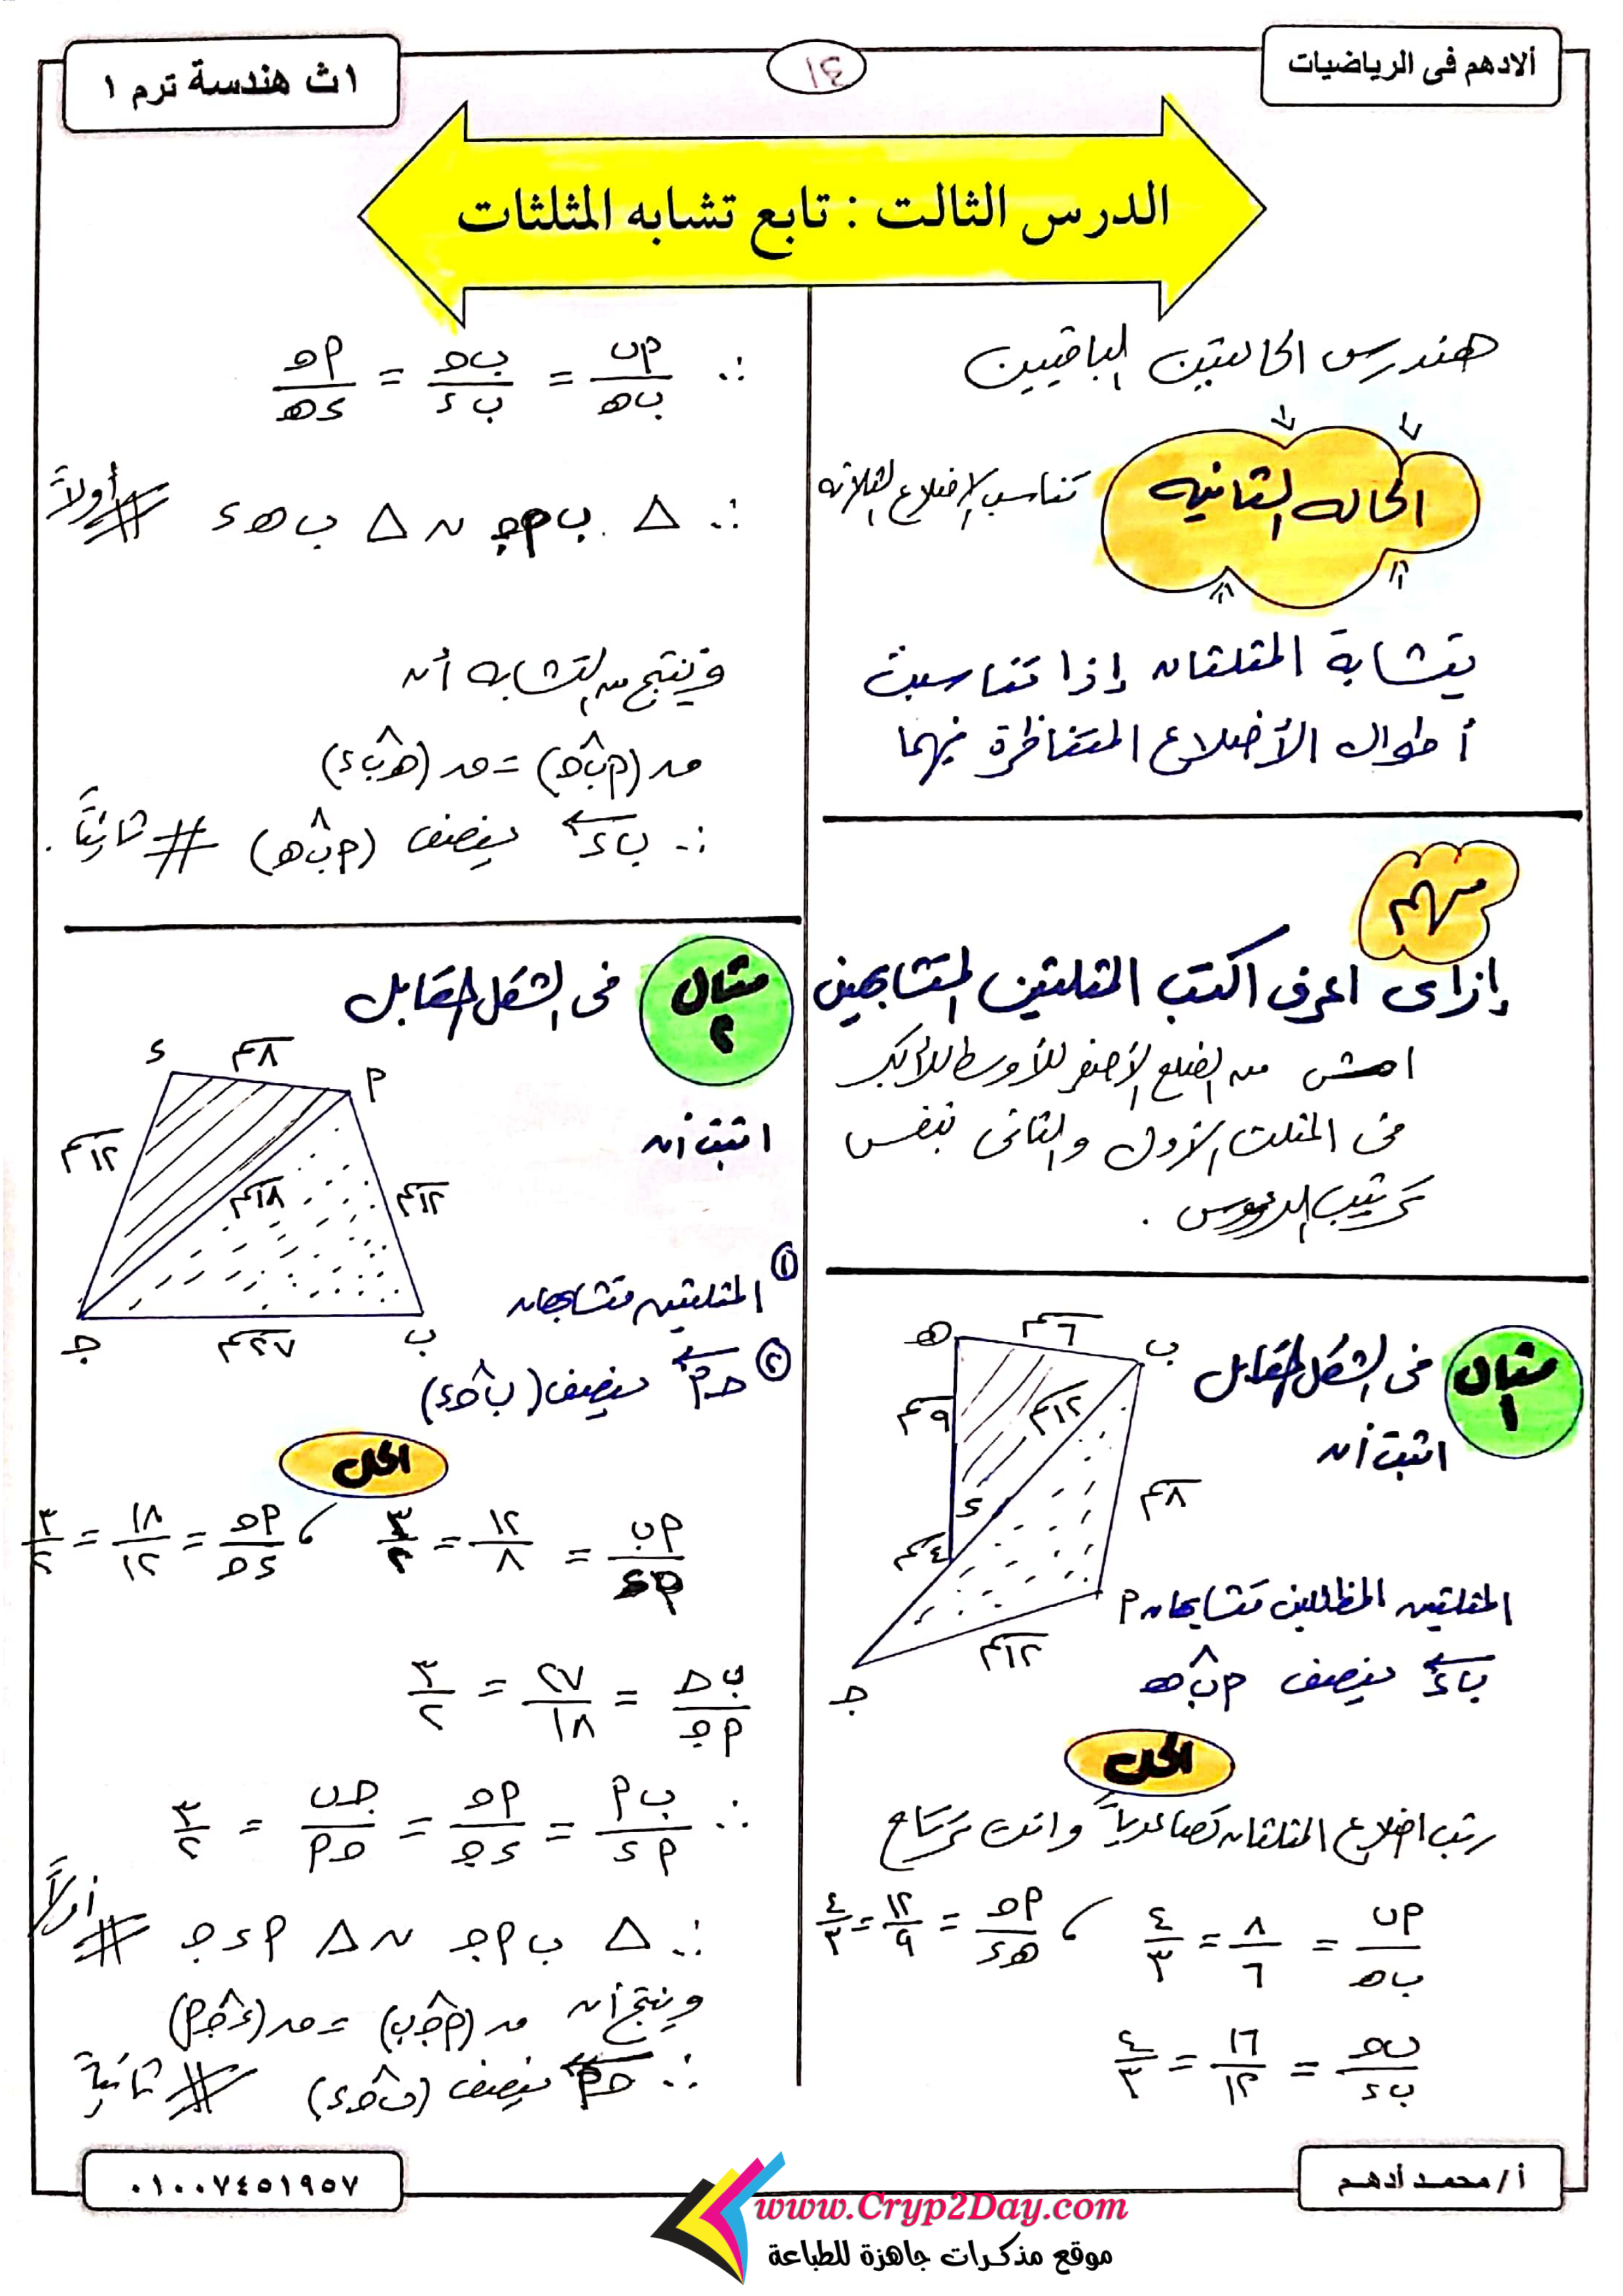 ألادهم فى الرياضيات
١٤
١ث هندسة ترم ١
الدرس الثالث : تابع تشابه المثلثات
هندرس الحالتين الباقيين
الحاله الثانيه
تناسب الاضلاع الثلاثه
يتشابة المثلثان إذا تناسبت
أطوال الأضلاع المتناظرة فيهما
مهم
إزاى اعرف اكتب المثلثين المتشابهين
امشى من الضلع الأصغر للأوسط للأكبر
فى المثلث الأول والثانى بنفس
ترتيب الرؤوس .
مثال ١
فى الشكل المقابل
اثبت أن
ه
٦سم
ب
٩سم
١٢سم
٨سم
د
٤سم
١٢سم
ج
المثلثين المظللين متشابهان
أ
ب د ينصف أ ب ه
الحل
رتب اضلاع المثلثان تصاعدياً وانت ترتاح
أب/ب ه = ٨/٦ = ٤/٣ ، أج/ه د = ١٢/٩ = ٤/٣
ب ج/ب د = ١٦/١٢ = ٤/٣
∴ أب/ب ه = ب ج/ب د = أج/د ه
∴ Δ ب أ ج ~ Δ ب ه د # أولاً
وينتج من التشابه أن
ق (أ ب ج) = ق (ه ب د)
∴ ب د ينصف (أ ب ه) # ثانياً .
مثال ٢
فى الشكل المقابل
اثبت أن
د
٨سم
أ
١٢سم
١٨سم
١٢سم
ج
٢٧سم
ب
١ المثلثين متشابهان
٢ ج أ ينصف (ب ج د)
الحل
أب/أد = ١٢/٨ = ٣/٢ ، أج/د ج = ١٨/١٢ = ٣/٢
ب ج/أ ج = ٢٧/١٨ = ٣/٢
∴ ب أ/أ د = أ ج/د ج = ج ب/ج أ = ٣/٢
∴ Δ ب أ ج ~ Δ أ د ج # أولاً
وينتج أن ق (أ ج ب) = ق (د ج أ)
∴ ج أ ينصف (ب ج د) # ثانياً
أ / محمد أدهم
٠١٠٠٧٤٥١٩٥٧
www.Cryp2Day.com
موقع مذكرات جاهزة للطباعة